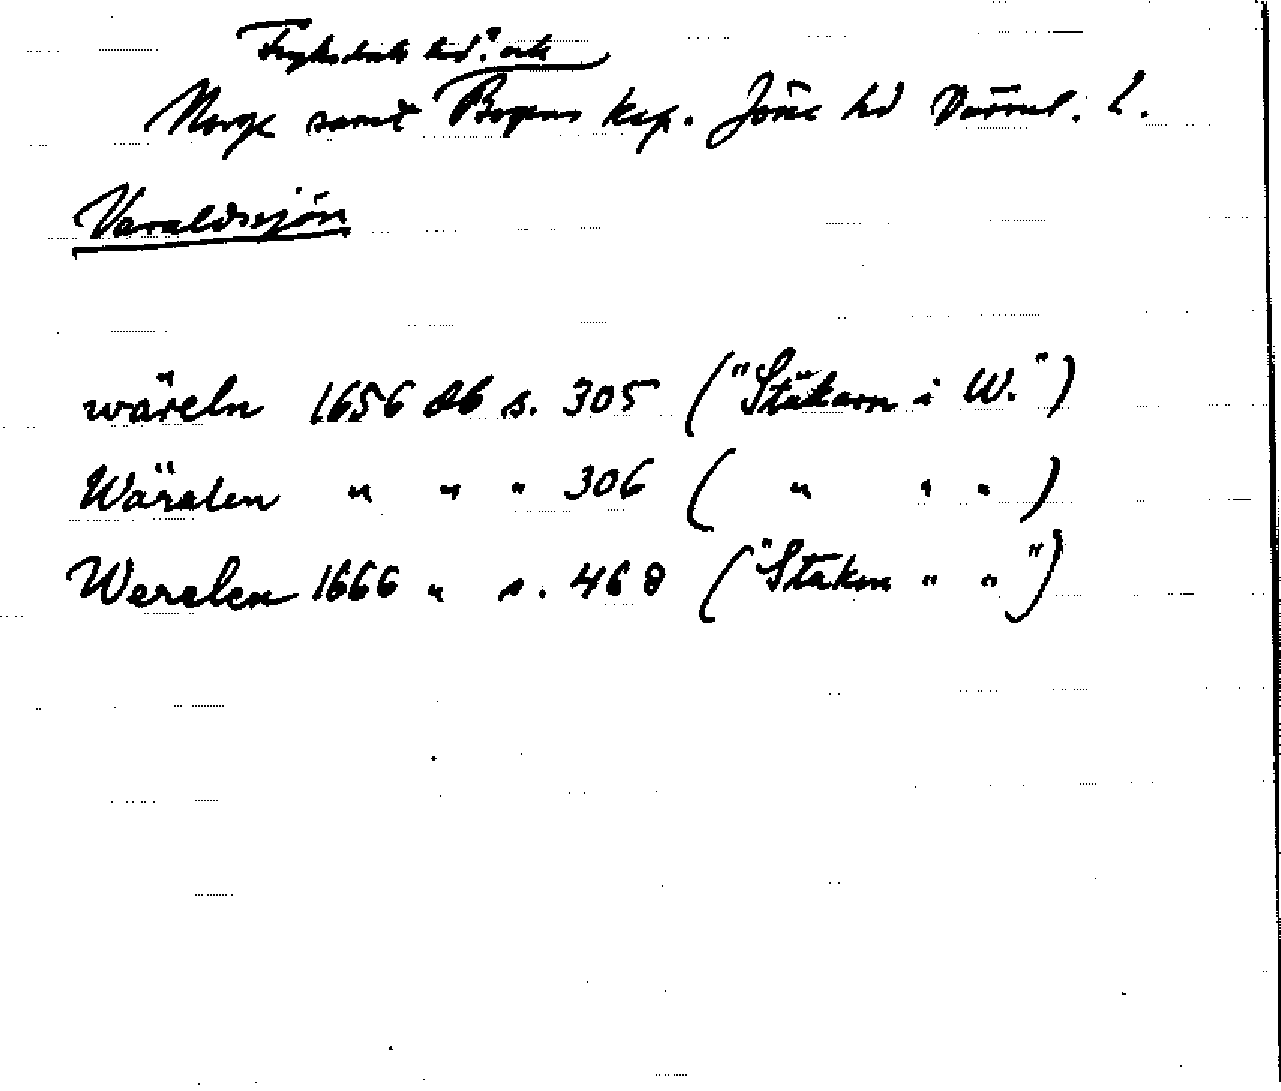 Fryksdals hd? och
Norge samt Bogens kap. Jösse hd Värml. l.
Varaldssjön
wäreln 1656 db s. 305 ("Stäkarn i W.")
Wäralen " " " 306 ( " " " )
Werelen 1666 " s. 468 ("Stäken " " ")